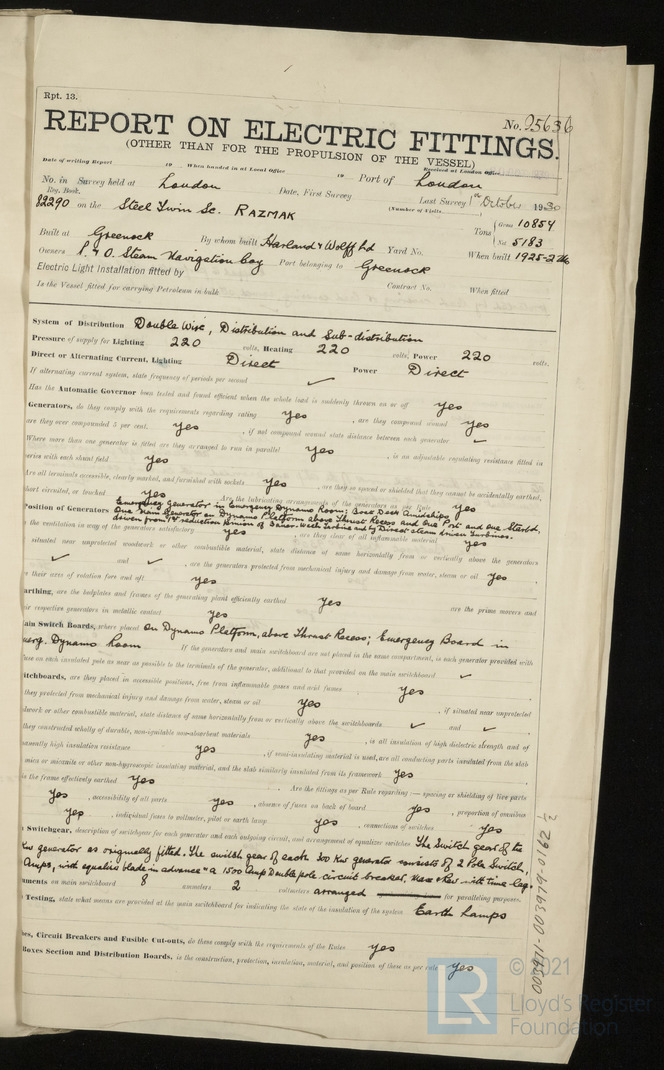 Rpt. 13.
No. 25636
REPORT ON ELECTRIC FITTINGS.
(OTHER THAN FOR THE PROPULSION OF THE VESSEL)
Date of writing Report 19 When handed in at Local Office 19 Received at London Office
No. in Survey held at London Date, First Survey Port of London
Reg. Book. Last Survey 1st October 1930
82290 on the Steel Twin Sc. RAZMAK (Number of Visits
Tons Gross 10854
Net 5183
Built at Greenock By whom built Harland & Wolff Ld Yard No. When built 1925-2
Owners P. & O. Steam Navigation Coy Port belonging to Greenock
Electric Light Installation fitted by Contract No. When fitted
Is the Vessel fitted for carrying Petroleum in bulk
System of Distribution Double Wire, Distribution and Sub-distribution
Pressure of supply for Lighting 220 volts, Heating 220 volts, Power 220 volts.
Direct or Alternating Current, Lighting Direct Power Direct
If alternating current system, state frequency of periods per second ✓
Has the Automatic Governor been tested and found efficient when the whole load is suddenly thrown on or off yes
Generators, do they comply with the requirements regarding rating yes, are they compound wound yes
are they over compounded 5 per cent. yes, if not compound wound state distance between each generator ✓
Where more than one generator is fitted are they arranged to run in parallel yes, is an adjustable regulating resistance fitted in
series with each shunt field yes
Are all terminals accessible, clearly marked, and furnished with sockets yes, are they so spaced or shielded that they cannot be accidentally earthed,
short circuited, or touched yes Are the lubricating arrangements of the generators as per Rule yes
Emergency generator in Emergency Dynamo Room; Boat Deck Amidships
Position of Generators One Main Generator on Dynamo Platform above Thrust Recess and One Port and One Starbd.
driven from reduction pinion of Bauer Wach Turbine and by Direct steam driven Turbines.
the ventilation in way of the generators satisfactory yes, are they clear of all inflammable material yes
situated near unprotected woodwork or other combustible material, state distance of same horizontally from or vertically above the generators
✓ and ✓, are the generators protected from mechanical injury and damage from water, steam or oil yes,
their axes of rotation fore and aft yes
arthing, are the bedplates and frames of the generating plant efficiently earthed yes are the prime movers and
ir respective generators in metallic contact yes
ain Switch Boards, where placed On Dynamo Platform, above Thrust Recess; Emergency Board in
merg. Dynamo Room If the generators and main switchboard are not placed in the same compartment, is each generator provided with
fuse on each insulated pole as near as possible to the terminals of the generator, additional to that provided on the main switchboard ✓
itchboards, are they placed in accessible positions, free from inflammable gases and acid fumes yes,
they protected from mechanical injury and damage from water, steam or oil yes, if situated near unprotected
dwork or other combustible material, state distance of same horizontally from or vertically above the switchboards ✓ and ✓,
they constructed wholly of durable, non-ignitable non-absorbent materials yes, is all insulation of high dielectric strength and of
manently high insulation resistance yes, if semi-insulating material is used, are all conducting parts insulated from the slab
mica or micanite or other non-hygroscopic insulating material, and the slab similarly insulated from its framework yes,
is the frame effectively earthed yes. Are the fittings as per Rule regarding:— spacing or shielding of live parts
yes, accessibility of all parts yes, absence of fuses on back of board yes, proportion of omnibus
yes, individual fuses to voltmeter, pilot or earth lamp yes, connections of switches yes
Switchgear, description of switchgear for each generator and each outgoing circuit, and arrangement of equalizer switches The Switch gear of the
Kw generator as originally fitted. The switch gear of each 300 Kw generator consists of 2 Pole Switch,
Amps, with equaliser blade in advance & a 1500 Amp Double pole circuit breaker, with time lag.
uments on main switchboard 8 ammeters 2 voltmeters arranged for paralleling purposes.
Testing, state what means are provided at the main switchboard for indicating the state of the insulation of the system Earth Lamps
es, Circuit Breakers and Fusible Cut-outs, do these comply with the requirements of the Rules yes
Boxes Section and Distribution Boards, is the construction, protection, insulation, material, and position of these as per rule yes
003971-003979-0162 ½
LR
© 2021
Lloyd's Register
Foundation